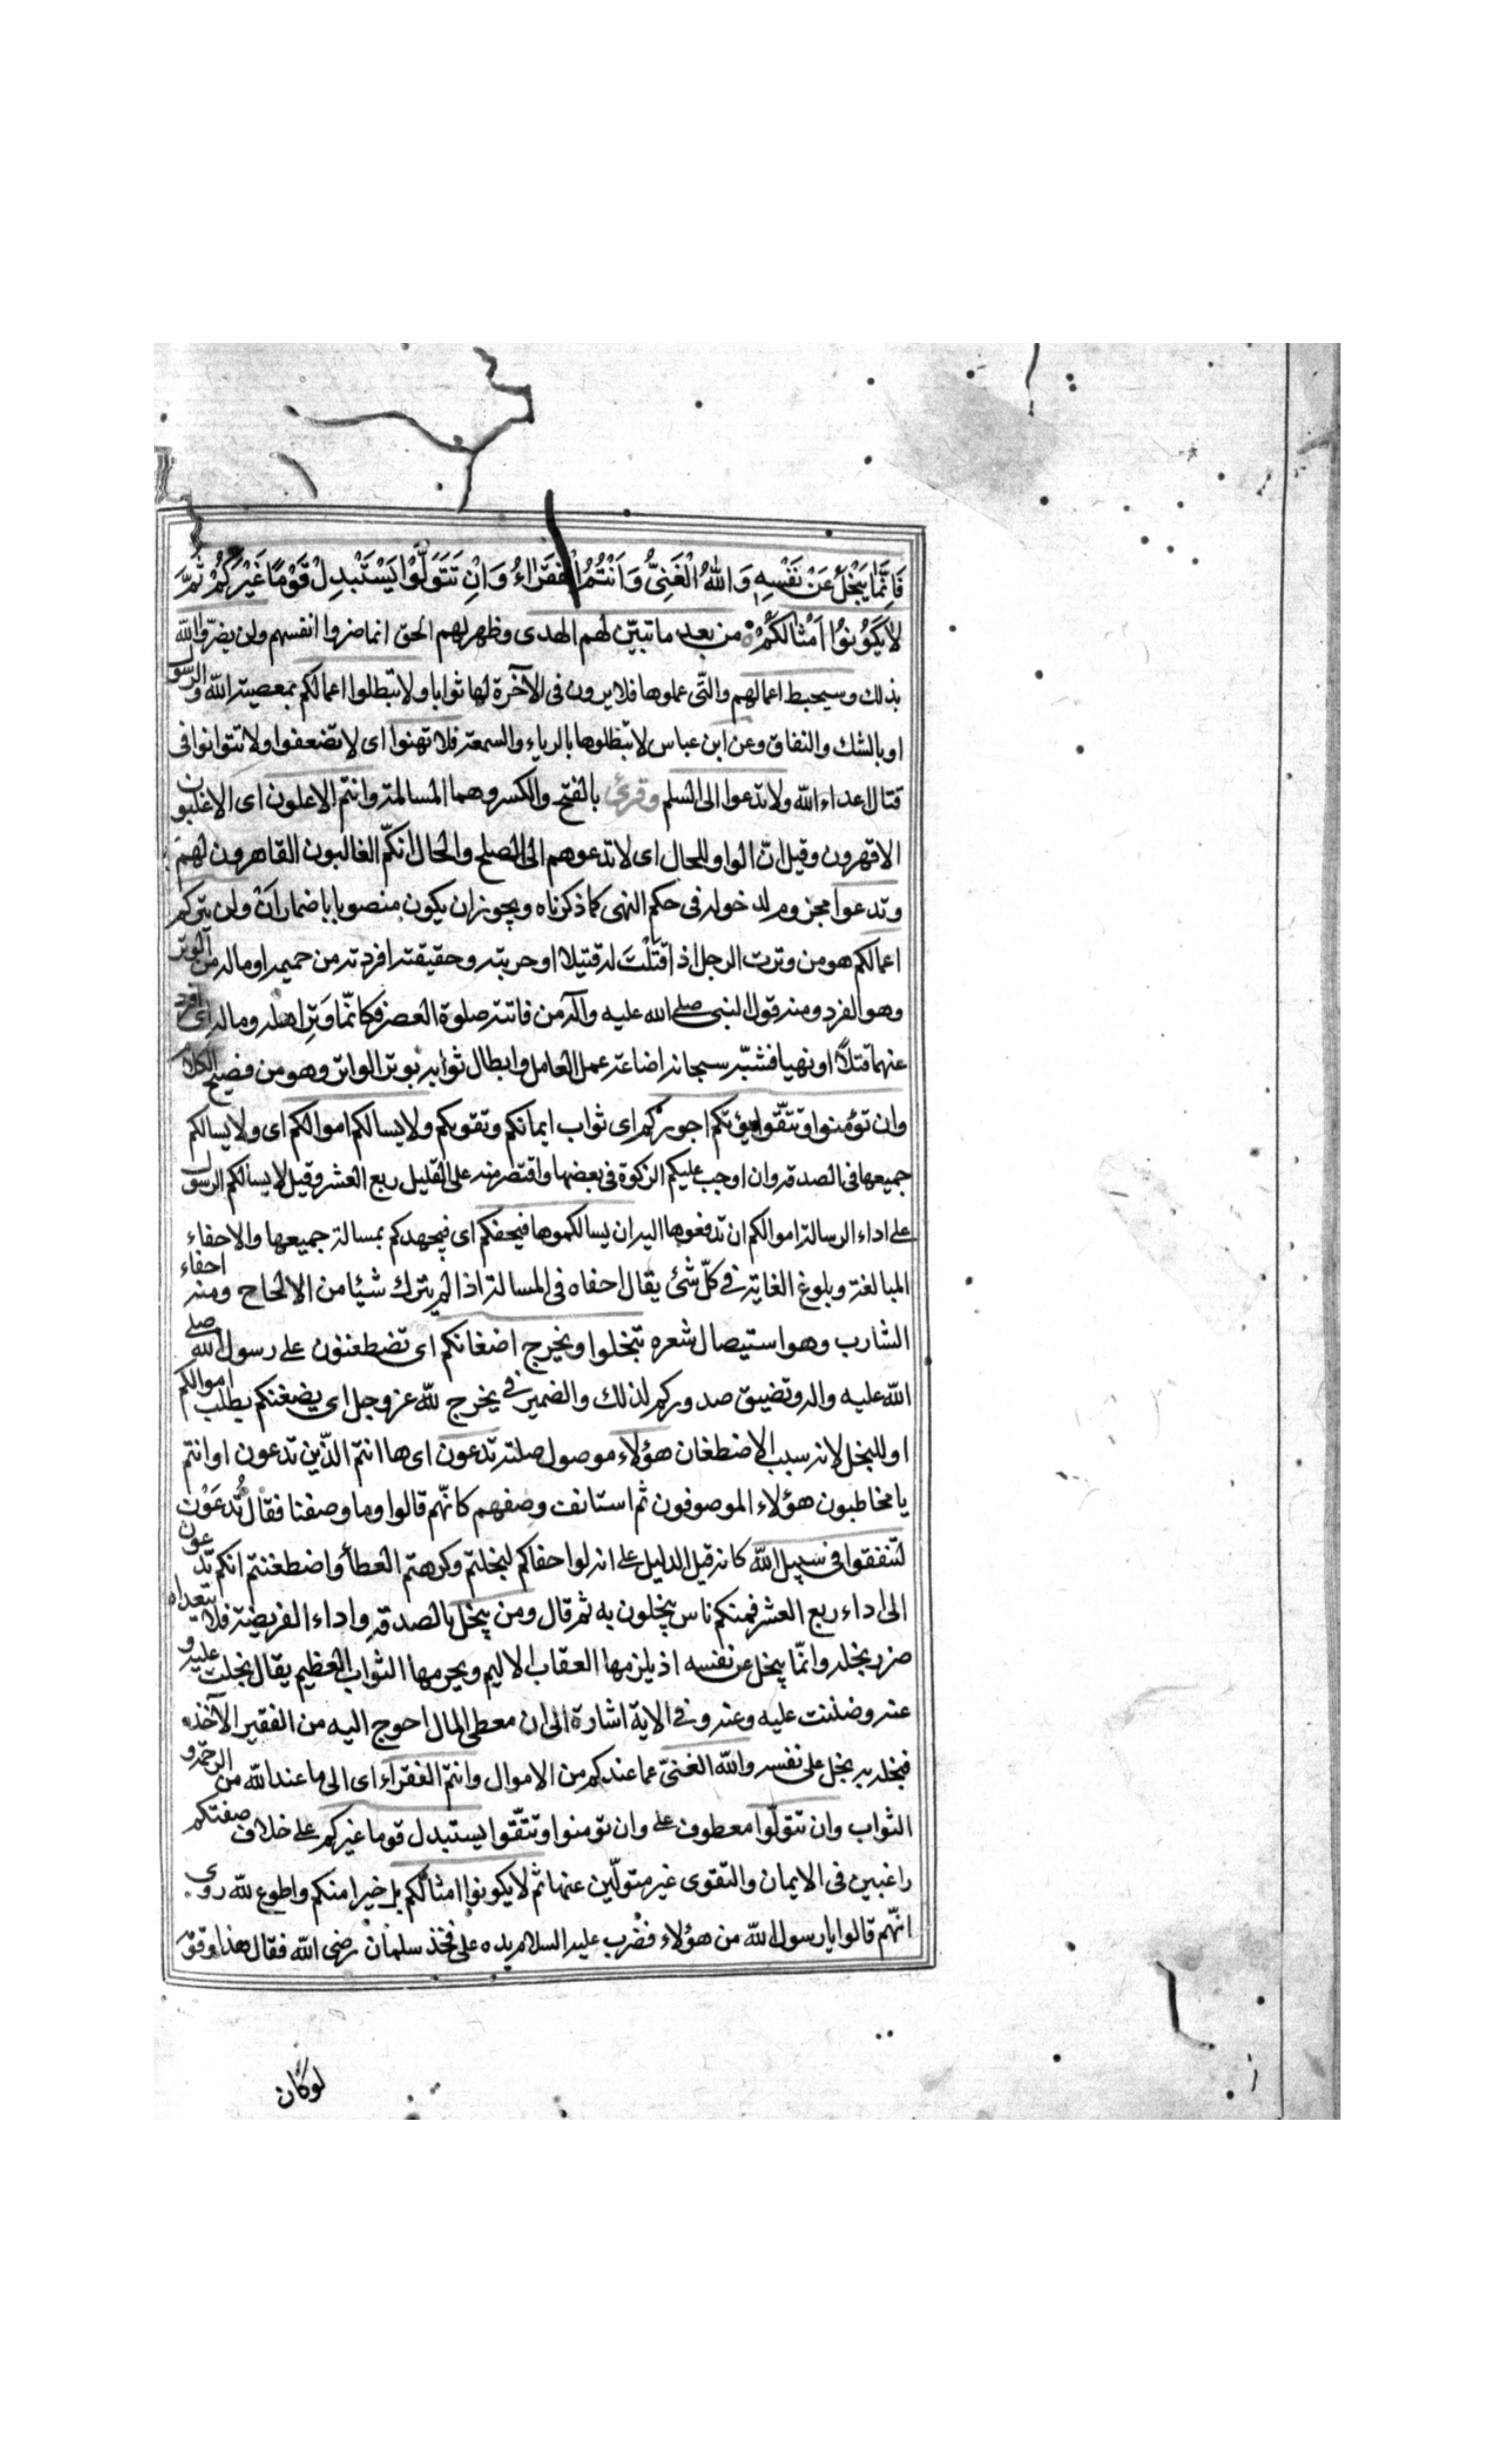 فَاِنَّمَا يَبْخَلُ عَنْ نَفْسِهِ وَاللّٰهُ الْغَنِىُّ وَاَنْتُمُ الْفُقَرَاءُ وَاِنْ تَتَوَلَّوْا يَسْتَبْدِلْ قَوْمًا غَيْرَكُمْ ثُمَّ
لَا يَكُوْنُوْا اَمْثَالَكُمْ من بعد ما تبيّن لهم الهدى وظهر لهم الحق انما ضروا انفسهم ولن يضرّوا الله
بذلك وسيحبط اعمالهم والتى عملوها فلا يرون فى الآخرة لها ثوابا ولا تبطلوا اعمالكم بمعصية الله والرسول
او بالشك والنفاق وعن ابن عباس لا تبطلوها بالرياء والسمعة فلا تهنوا اى لا تضعفوا ولا تتوانوا فى
قتال اعداء الله ولا تدعوا الى السلم وقرئ بالفتح والكسر وهما المسالمة وانتم الاعلون اى الاغلبون
الاقهرون وقيل انّ الواو للحال اى لا تدعوهم الى الصلح والحال انكم الغالبون القاهرون لهم
وتدعوا مجزوم لدخوله فى حكم النهى كما ذكرناه ويجوز ان يكون منصوبا باضمار اَنْ ولن يتركم
اعمالكم هو من وترت الرجل اذ اقتلت له قتيلا او حربته وحقيقته افردته من حميمه او ماله من الوتر
وهو الفرد ومنه قول النبى صلى الله عليه وآله من فاتته صلوة العصر فكانّما وَتِر اهله وماله اى افرد
عنهما قتلاً او نهبا فشبّه سبحانه اضاعة عمل العامل وابطال ثوابه بوتر الواتر وهو من فصيح الكلام
وان تؤمنوا وتتّقوا يؤتكم اجوركم اى ثواب ايمانكم وتقويكم ولا يسالكم اموالكم اى ولا يسالكم
جميعها فى الصدقة وان اوجب عليكم الزكوة فى بعضها واقتصر منه على القليل ربع العشر وقيل لا يسالكم الرسول
على اداء الرسالة اموالكم ان تدفعوها اليه ان يسالكموها فيحفكم اى فيجهدكم بمسالة جميعها والاحفاء
المبالغة وبلوغ الغاية فى كلّ شئ يقال احفاه فى المسالة اذا لم يترك شيئا من الالحاح ومنه احفاء
الشارب وهو استيصال شعره تبخلوا ويخرج اضغانكم اى تضطغنون على رسول الله صلى
الله عليه واله وتضيق صدوركم لذلك والضمير فى يخرج لله عز وجل اى يضغنكم بطلب اموالكم
او للبخل لانه سبب الاضطغان هؤلاء موصول صلته تدعون اى ها انتم الذين تدعون او انتم
يا مخاطبون هؤلاء الموصوفون ثم استانف وصفهم كانّهم قالوا وما وصفنا فقال تُدعَوْن
لتنفقوا فى سبيل الله كانه قيل الدليل على انه لو احفاكم لبخلتم وكرهتم العطأ واضطغنتم انكم تدعون
الى اداء ربع العشر فمنكم ناس يبخلون به ثم قال ومن يبخل بالصدقة واداء الفريضة فلا يتعداه
ضرر بخله وانّما يبخل عن نفسه اذ يلزمها العقاب الاليم ويحرمها الثواب العظيم يقال بخلت عليه و
عنه وضننت عليه وعنه وفى الاية اشارة الى ان معطى المال احوج اليه من الفقير الآخذ
فبخله به بخل على نفسه والله الغنىّ عما عندكم من الاموال وانتم الفقراء اى الى ما عند الله من الرحمة و
الثواب وان تتولّوا معطوف على وان تؤمنوا وتتّقوا يستبدل قوما غيركم على خلاف صفتكم
راغبين فى الايمان والتقوى غير متولّين عنها ثم لا يكونوا امثالكم بل خيرا منكم واطوع لله روى
انّهم قالوا يا رسول الله من هؤلاء فضرب عليه السلام يده على فخذ سلمان رضى الله فقال هذا وقومه
لوكان